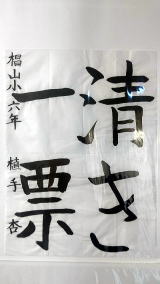 清き
一票
椙山小六年 植手 杏